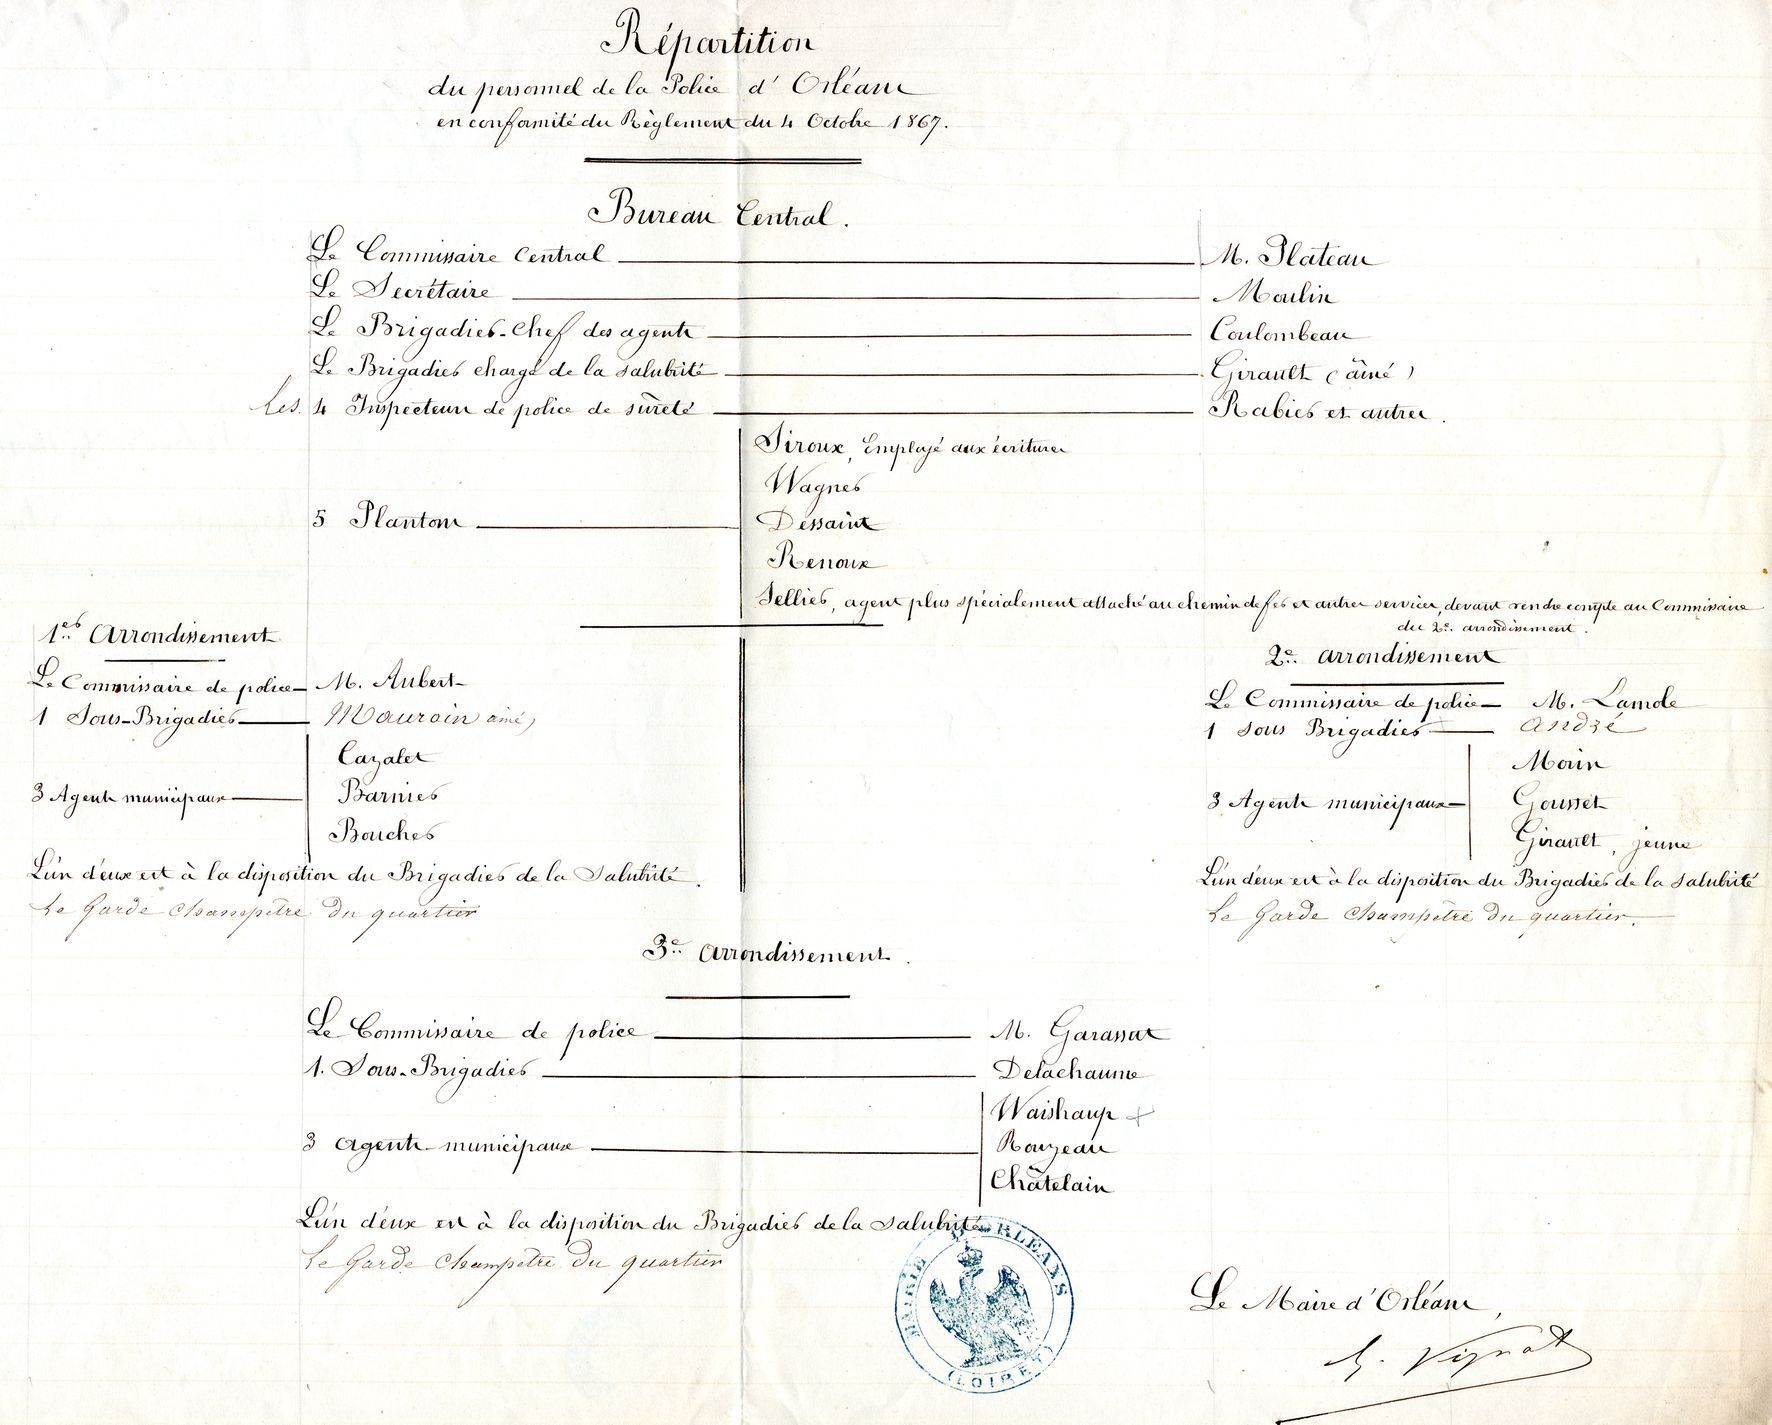 Répartition
du personnel de la Police d'Orléans
en conformité du Règlement du 4 Octobre 1867.
Bureau Central.
Le Commissaire Central M. Plateau
Le Secrétaire Moulin
Le Brigadier-Chef des agents Coulombeau
Le Brigadier chargé de la salubrité Girault (aîné)
Les 4 Inspecteurs de police de sûreté Rabier et autres.
5 Plantons
Siroux, Employé aux écritures
Wagner
Dessaint
Renoux
Sellier, agent plus spécialement attaché au chemin de fer et autres services, devant rendre compte au Commissaire
du 2e. arrondissement.
1er Arrondissement
Le Commissaire de police M. Aubert
1 Sous-Brigadier Mauroin aîné)
3 Agents municipaux
Cazalet
Barnier
Boucher
L'un d'eux est à la disposition du Brigadier de la Salubrité.
Le Garde champêtre du quartier
2e. arrondissement
Le Commissaire de police M. Lamole
1 Sous Brigadier André
3 Agents municipaux
Morin
Gousset
Girault, jeune
L'un d'eux est à la disposition du Brigadier de la salubrité
Le Garde Champêtre du quartier.
3e. arrondissement.
Le Commissaire de police M. Garassut
1. Sous-Brigadier Delachaume
3 agents municipaux
Waishaup +
Rouzeau
Châtelain
L'un d'eux est à la disposition du Brigadier de la salubrité
Le Garde Champêtre du quartier
MAIRIE D'ORLÉANS
(LOIRET)
Le Maire d'Orléans,
E. Vignat